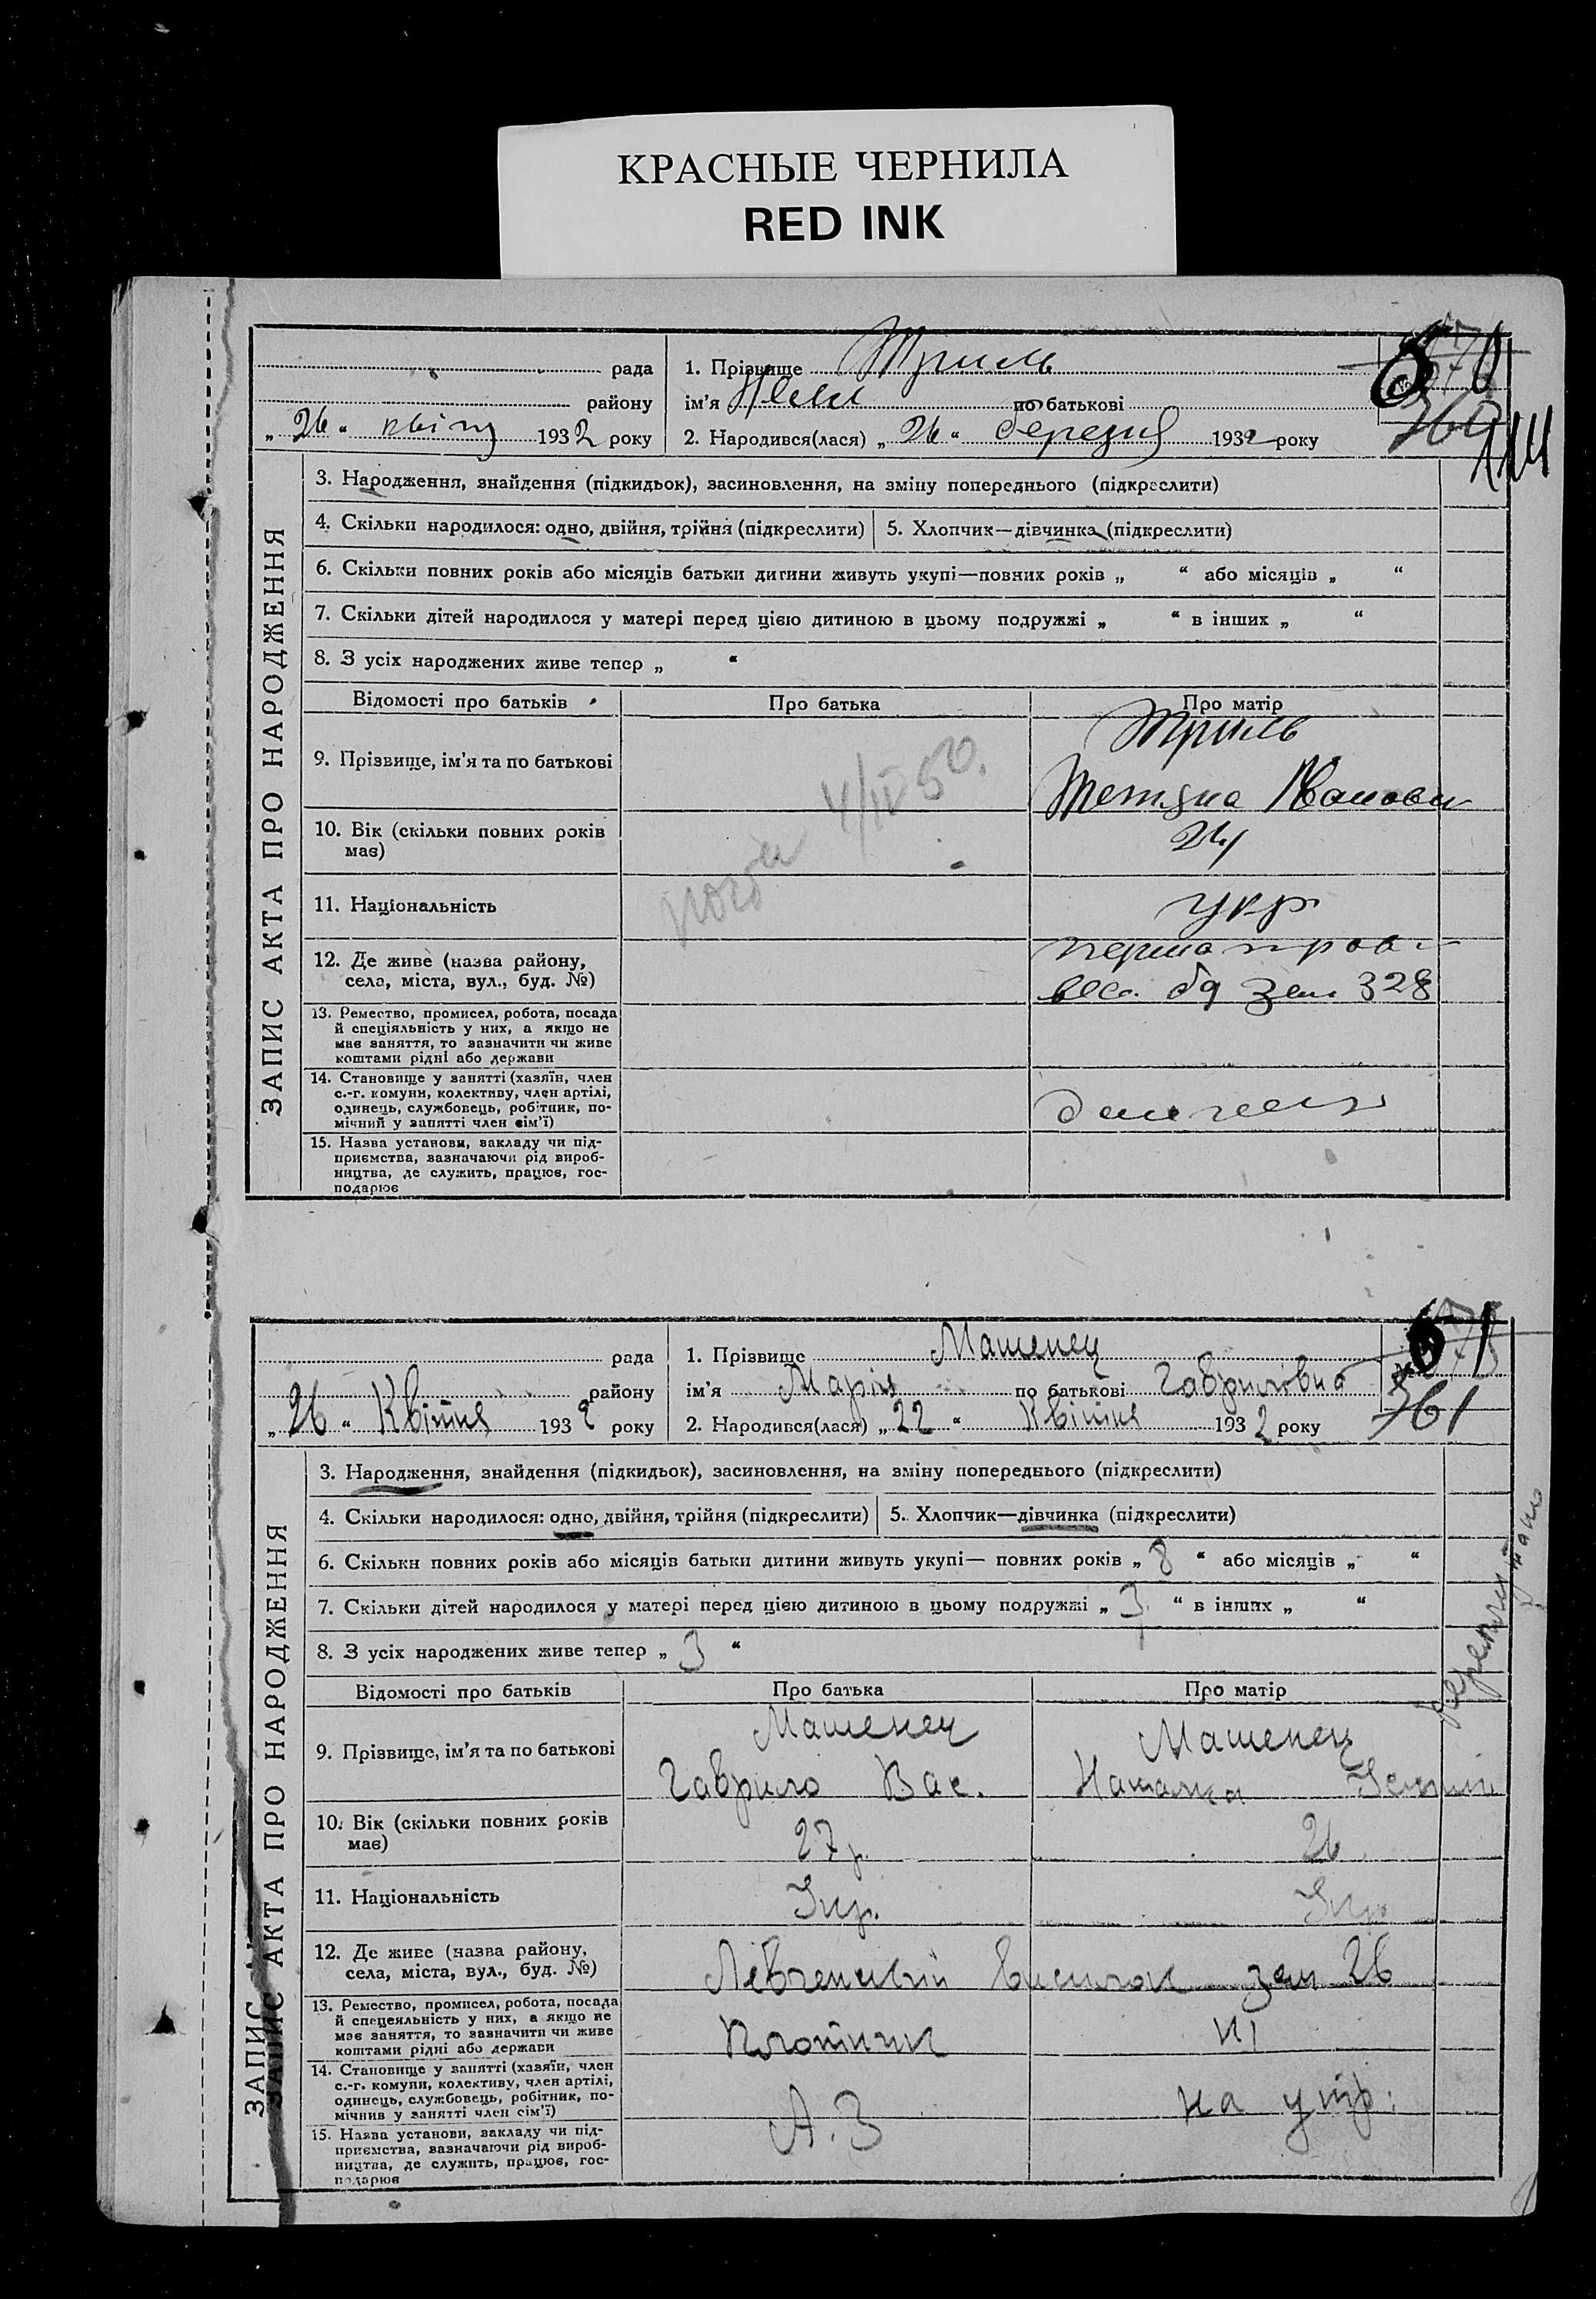 КРАСНЫЕ ЧЕРНИЛА
RED INK
рада
району
„ 26 “ 1932 року
1. Прізвище Триль
ім'я по батькові
2. Народився(лася) „ 26 “ березня 1932 року
570
360
114
ЗАПИС АКТА ПРО НАРОДЖЕННЯ
3. Народження, знайдення (підкидьок), засиновлення, на зміну попереднього (підкреслити)
4. Скільки народилося: одно, двійня, трійня (підкреслити)
5. Хлопчик—дівчинка (підкреслити)
6. Скільки повних років або місяців батьки дитини живуть укупі—повних років „ “ або місяців „ “
7. Скільки дітей народилося у матері перед цією дитиною в цьому подружжі „ “ в інших „ “
8. З усіх народжених живе тепер „ “
Відомості про батьків
Про батька
Про матір
9. Прізвище, ім'я та по батькові
Триль
Тетяна Івановн
4/IV 50.
10. Вік (скільки повних років
має)
24
11. Національність
укр
12. Де живе (назва району,
села, міста, вул., буд. №)
зем 328
13. Ремество, промисел, робота, посада
й спеціяльність у них, а якщо не
має заняття, то зазначити чи живе
коштами рідні або держави
14. Становище у занятті (хазяїн, член
с.-г. комуни, колективу, член артілі,
одинець, службовець, робітник, по-
мічний у занятті член сім'ї)
15. Назва установи, закладу чи під-
приємства, зазначаючи рід вироб-
ництва, де служить, працює, гос-
подарює
рада
району
„ 26 “ Квітня 1932 року
1. Прізвище Машенец
ім'я Марія по батькові Гавриловна
2. Народився(лася) „ 22 “ Квітня 1932 року
571
361
ЗАПИС АКТА ПРО НАРОДЖЕННЯ
3. Народження, знайдення (підкидьок), засиновлення, на зміну попереднього (підкреслити)
4. Скільки народилося: одно, двійня, трійня (підкреслити)
5. Хлопчик—дівчинка (підкреслити)
6. Скільки повних років або місяців батьки дитини живуть укупі— повних років „ 8 “ або місяців „ “
7. Скільки дітей народилося у матері перед цією дитиною в цьому подружжі „ 3 “ в інших „ “
8. З усіх народжених живе тепер „ 3 “
Відомості про батьків
Про батька
Про матір
9. Прізвище, ім'я та по батькові
Машенец
Гаврило Вас.
Машенец
Наталка
10. Вік (скільки повних років
має)
27 р.
26
11. Національність
Укр.
Укр
12. Де живе (назва району,
села, міста, вул., буд. №)
Левченский висилок зем 26
13. Ремество, промисел, робота, посада
й спецеяльність у них, а якщо не
має заняття, то зазначити чи живе
коштами рідні або держави
Плотник
14. Становище у занятті (хазяїн, член
с.-г. комуни, колективу, член артілі,
одинець, службовець, робітник, по-
мічник у занятті член сім'ї)
на утр.
15. Назва установи, закладу чи під-
приємства, зазначаючи рід вироб-
ництва, де служить, працює, гос-
подарює
А. З